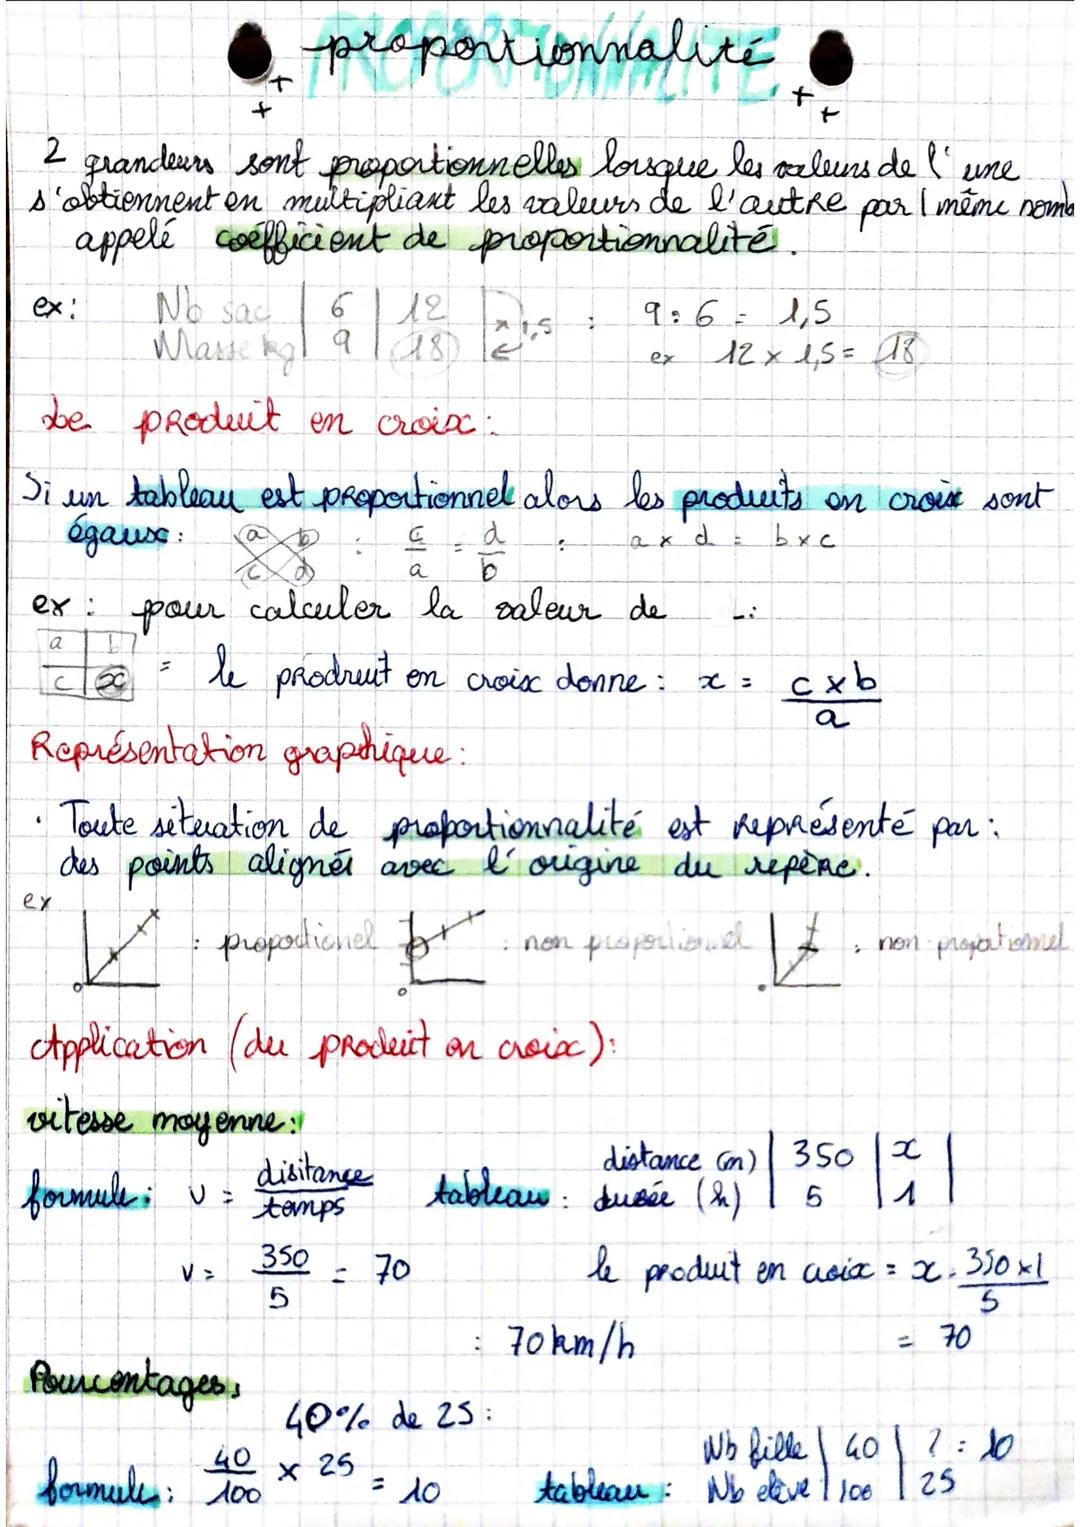 proportionnalité
PROPORTIONNALITE
2 grandeurs sont proportionnelles lorsque les valeurs de l'une
s'obtiennent en multipliant les valeurs de l'autre par 1 même nomb
appelé coefficient de proportionnalité.
ex: Nb sac | 6 | 12 | x 1,5 : 9 : 6 = 1,5
Masse kg | 9 | 18 | ex 12 x 1,5 = 18
Le produit en croix :
Si un tableau est proportionnel alors les produits en croix sont
égaux : a b c d : c/a = d/b : a x d = b x c
ex : pour calculer la valeur de -:
a b c x = le prodruit en croix donne : x = c x b / a
Représentation graphique :
· Toute situation de proportionnalité est représenté par :
des points alignés avec l'origine du repère.
ex
0 : proportionel 0 : non proportionnel 0 : non propationnel
Application (du produit en croix) :
vitesse moyenne :
formule : v = disitance / temps tableau : distance (m) | 350 | x |
durée (h) | 5 | 1 |
v = 350 / 5 = 70 le produit en croix = x = 350 x 1 / 5
: 70 km/h = 70
Pourcentages :
40% de 25 :
formule : 40 / 100 x 25 = 10 tableau : Nb fille | 40 | ? = 10
Nb elève | 100 | 25